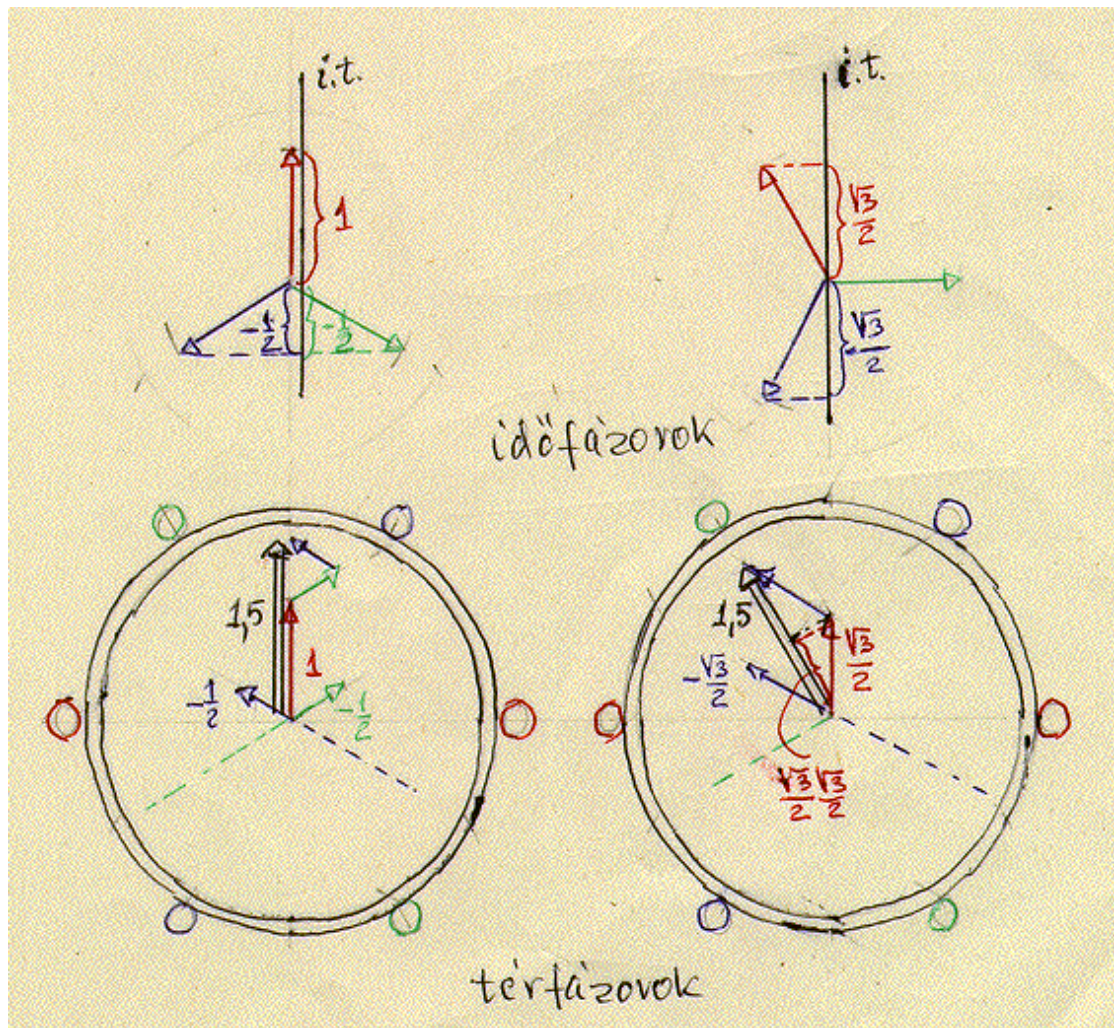 i.t.
i.t.
1
√3/2
-1/2
-1/2
-√3/2
időfázorok
1,5
1
-1/2
-1/2
1,5
√3/2
-√3/2
√3/2 √3/2
térfázorok